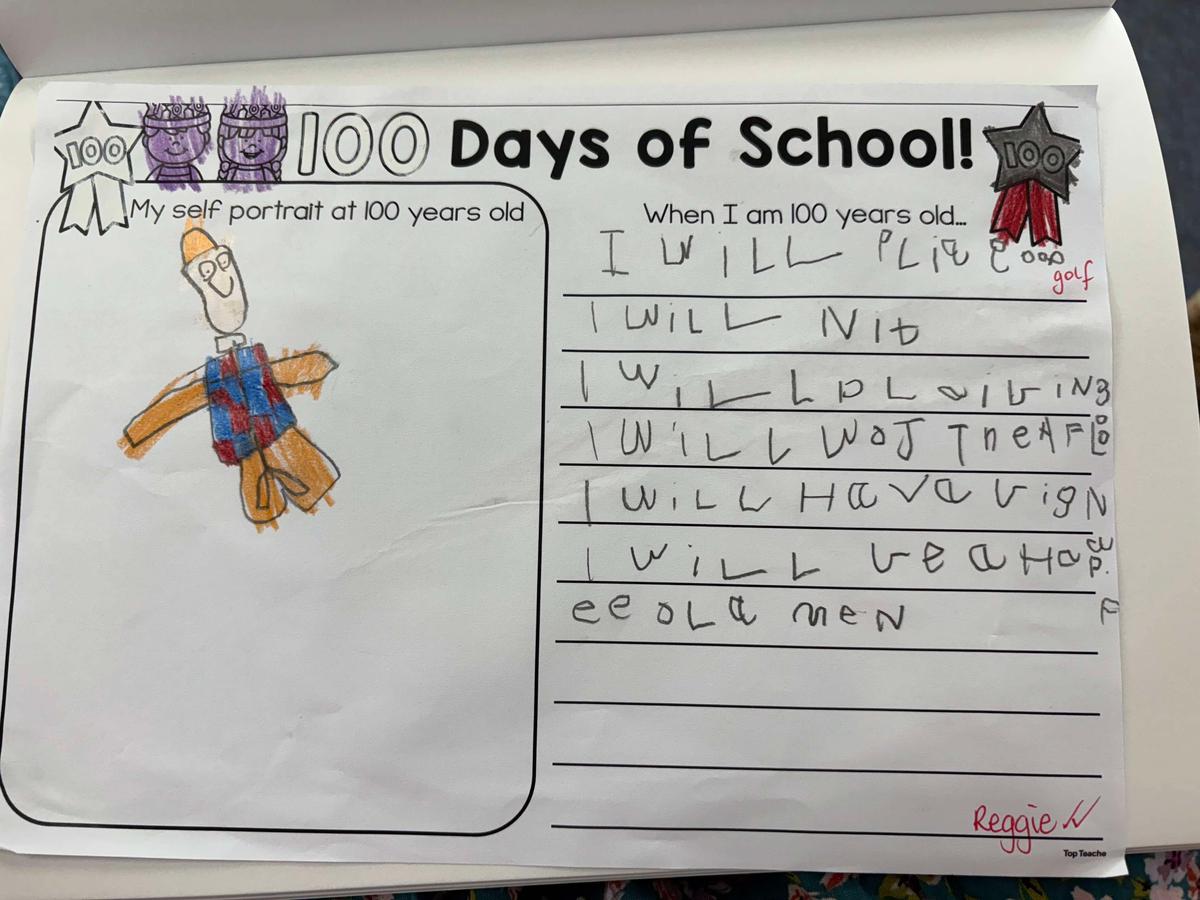 100
100 Days of School!
100
My self portrait at 100 years old
When I am 100 years old...
I WiLL PLia
golf
I WiLL Nit
I WiLL
I WiLL
I WiLL Hava vig N
I WiLL ve a Hap
ee oLd meN
Reggie
Top Teache